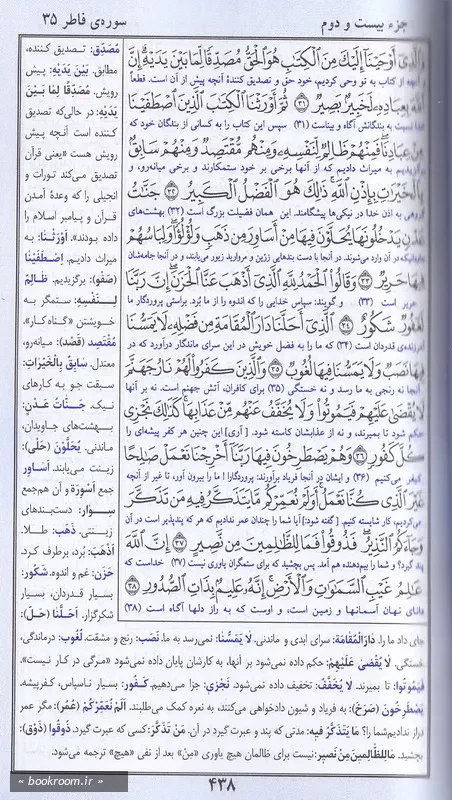 جزء بیست و دوم
سوره‌ی فاطر ۳۵
وَالَّذِي أَوْحَيْنَا إِلَيْكَ مِنَ الْكِتَابِ هُوَ الْحَقُّ مُصَدِّقًا لِمَا بَيْنَ يَدَيْهِ إِنَّ
و آنچه از کتاب به تو وحی کردیم، خود حق و تصدیق کنندهٔ آنچه پیش از آن است. قطعاً
اللَّهَ بِعِبَادِهِ لَخَبِيرٌ بَصِيرٌ ۳۱ ثُمَّ أَوْرَثْنَا الْكِتَابَ الَّذِينَ اصْطَفَيْنَا
خدا نسبت به بندگانش آگاه و بیناست (۳۱) سپس این کتاب را به کسانی از بندگان خود که
مِنْ عِبَادِنَا فَمِنْهُمْ ظَالِمٌ لِنَفْسِهِ وَمِنْهُمْ مُقْتَصِدٌ وَمِنْهُمْ سَابِقٌ
برگزیدیم به میراث دادیم که از آنها برخی بر خود ستمکارند و برخی میانه‌رو، و
بِالْخَيْرَاتِ بِإِذْنِ اللَّهِ ذَلِكَ هُوَ الْفَضْلُ الْكَبِيرُ ۳۲ جَنَّاتُ
گروهی به اذن خدا در نیکی‌ها پیشگامند. این همان فضیلت بزرگ است (۳۲) بهشت‌های
عَدْنٍ يَدْخُلُونَهَا يُحَلَّوْنَ فِيهَا مِنْ أَسَاوِرَ مِنْ ذَهَبٍ وَلُؤْلُؤًا وَلِبَاسُهُمْ
که در آن وارد می‌شوند. در آنجا با دست بندهایی زرّین و مروارید زیور یابند، و در آنجا جامه‌شان
فِيهَا حَرِيرٌ ۳۳ وَقَالُوا الْحَمْدُ لِلَّهِ الَّذِي أَذْهَبَ عَنَّا الْحَزَنَ إِنَّ رَبَّنَا
حریر است (۳۳) و گویند: سپاس خدایی را که اندوه را از ما بُرد. براستی پروردگار ما
لَغَفُورٌ شَكُورٌ ۳۴ الَّذِي أَحَلَّنَا دَارَ الْمُقَامَةِ مِنْ فَضْلِهِ لَا يَمَسُّنَا
آمرزنده‌ی قدردان است (۳۴) که ما را به فضل خویش در این سرای ماندگار درآورد که در
فِيهَا نَصَبٌ وَلَا يَمَسُّنَا فِيهَا لُغُوبٌ ۳۵ وَالَّذِينَ كَفَرُوا لَهُمْ نَارُ جَهَنَّمَ
آنجا نه رنجی به ما رسد و نه خستگی (۳۵) برای کافران، آتش جهنم است. نه بر آنها
لَا يُقْضَى عَلَيْهِمْ فَيَمُوتُوا وَلَا يُخَفَّفُ عَنْهُمْ مِنْ عَذَابِهَا كَذَلِكَ نَجْزِي
حکم شود تا بمیرند، و نه از عذابشان کاسته شود. [آری] این چنین هر کفر پیشه‌ای را
كُلَّ كَفُورٍ ۳۶ وَهُمْ يَصْطَرِخُونَ فِيهَا رَبَّنَا أَخْرِجْنَا نَعْمَلْ صَالِحًا
کیفر می‌کنیم (۳۶) و ایشان در آنجا فریاد برآورند: پروردگارا ما را بیرون آور، تا غیر از آنچه
غَيْرَ الَّذِي كُنَّا نَعْمَلُ أَوَلَمْ نُعَمِّرْكُمْ مَا يَتَذَكَّرُ فِيهِ مَنْ تَذَكَّرَ
می‌کردیم، کار شایسته کنیم. [گفته شود:] آیا شما را چندان عمر ندادیم که هر که پندپذیر است در آن
وَجَاءَكُمُ النَّذِيرُ فَذُوقُوا فَمَا لِلظَّالِمِينَ مِنْ نَصِيرٍ ۳۷ إِنَّ اللَّهَ
پند گیرد؟ و شما را بیم‌دهنده هم آمد. پس بچشید که برای ستمگران یاوری نیست (۳۷) خداست که
عَالِمُ غَيْبِ السَّمَاوَاتِ وَالْأَرْضِ إِنَّهُ عَلِيمٌ بِذَاتِ الصُّدُورِ ۳۸
دانای نهان آسمانها و زمین است، و اوست که به راز دلها آگاه است (۳۸)
مُصَدِّق: تصدیق کننده،
مطابق. بَيْنَ يَدَيْهِ: پیش
رویش. مُصَدِّقًا لِمَا بَيْنَ
يَدَيْهِ: در حالی‌که تصدیق
کننده است آنچه پیش
رویش هست «یعنی قرآن
تصدیق می‌کند تورات و
انجیلی را که وعدهٔ آمدن
قرآن و پیامبر اسلام را
داده بودند». أَوْرَثْنَا: به
میراث دادیم. اِصْطَفَيْنَا
(صَفْو): برگزیدیم. ظَالِم
لِنَفْسِهِ: ستمگر به
خویشتن «گناه‌کار».
مُقْتَصِد (قَصْد): میانه‌رو،
معتدل. سَابِقٌ بِالْخَيْرَاتِ:
سبقت جو به کارهای
نیک. جَنَّاتُ عَدْنٍ:
بهشت‌های جاویدان،
ماندنی. يُحَلَّوْنَ (حَلْي):
زینت می‌یابند. أَسَاوِر
جمع أَسْوِرَة و آن هم جمع
سِوَار: دست‌بندهای
زینتی. ذَهَب: طلا.
أَذْهَبَ: بُرد، برطرف کرد.
حَزَن: غم و اندوه. شَكُور:
بسیار قدردان، بسیار
شکرگزار. أَحَلَّنَا (حَلّ):
جای داد ما را. دَارَ الْمُقَامَة: سرای ابدی و ماندنی. لَا يَمَسُّنَا: نمی‌رسد به ما. نَصَب: رنج و مشقت. لُغُوب: درماندگی،
خستگی. لَا يُقْضَى عَلَيْهِمْ: حکم داده نمی‌شود بر آنها، به کارشان پایان داده نمی‌شود «مرگی در کار نیست».
فَيَمُوتُوا: تا بمیرند. لَا يُخَفَّفُ: تخفیف داده نمی‌شود. نَجْزِي: جزا می‌دهیم. كَفُور: بسیار ناسپاس، کفرپیشه.
يَصْطَرِخُونَ (صَرَخ): به فریاد و شیون دادخواهی می‌کنند، به نعره کمک می‌طلبند. أَلَمْ نُعَمِّرْكُمْ (عُمْر): مگر عمر
ندادیم شما را؟ مَا يَتَذَكَّرُ فِيهِ: مدتی که پند و عبرت گیرد در آن. مَنْ تَذَكَّرَ: کسی که عبرت گیرد. ذُوقُوا (ذَوْق):
بچشید. مَا لِلظَّالِمِينَ مِنْ نَصِيرٍ: نیست برای ظالمان هیچ یاوری «مِنْ» بعد از نفی «هیچ» ترجمه می‌شود.
۴۳۸
« bookroom.ir »